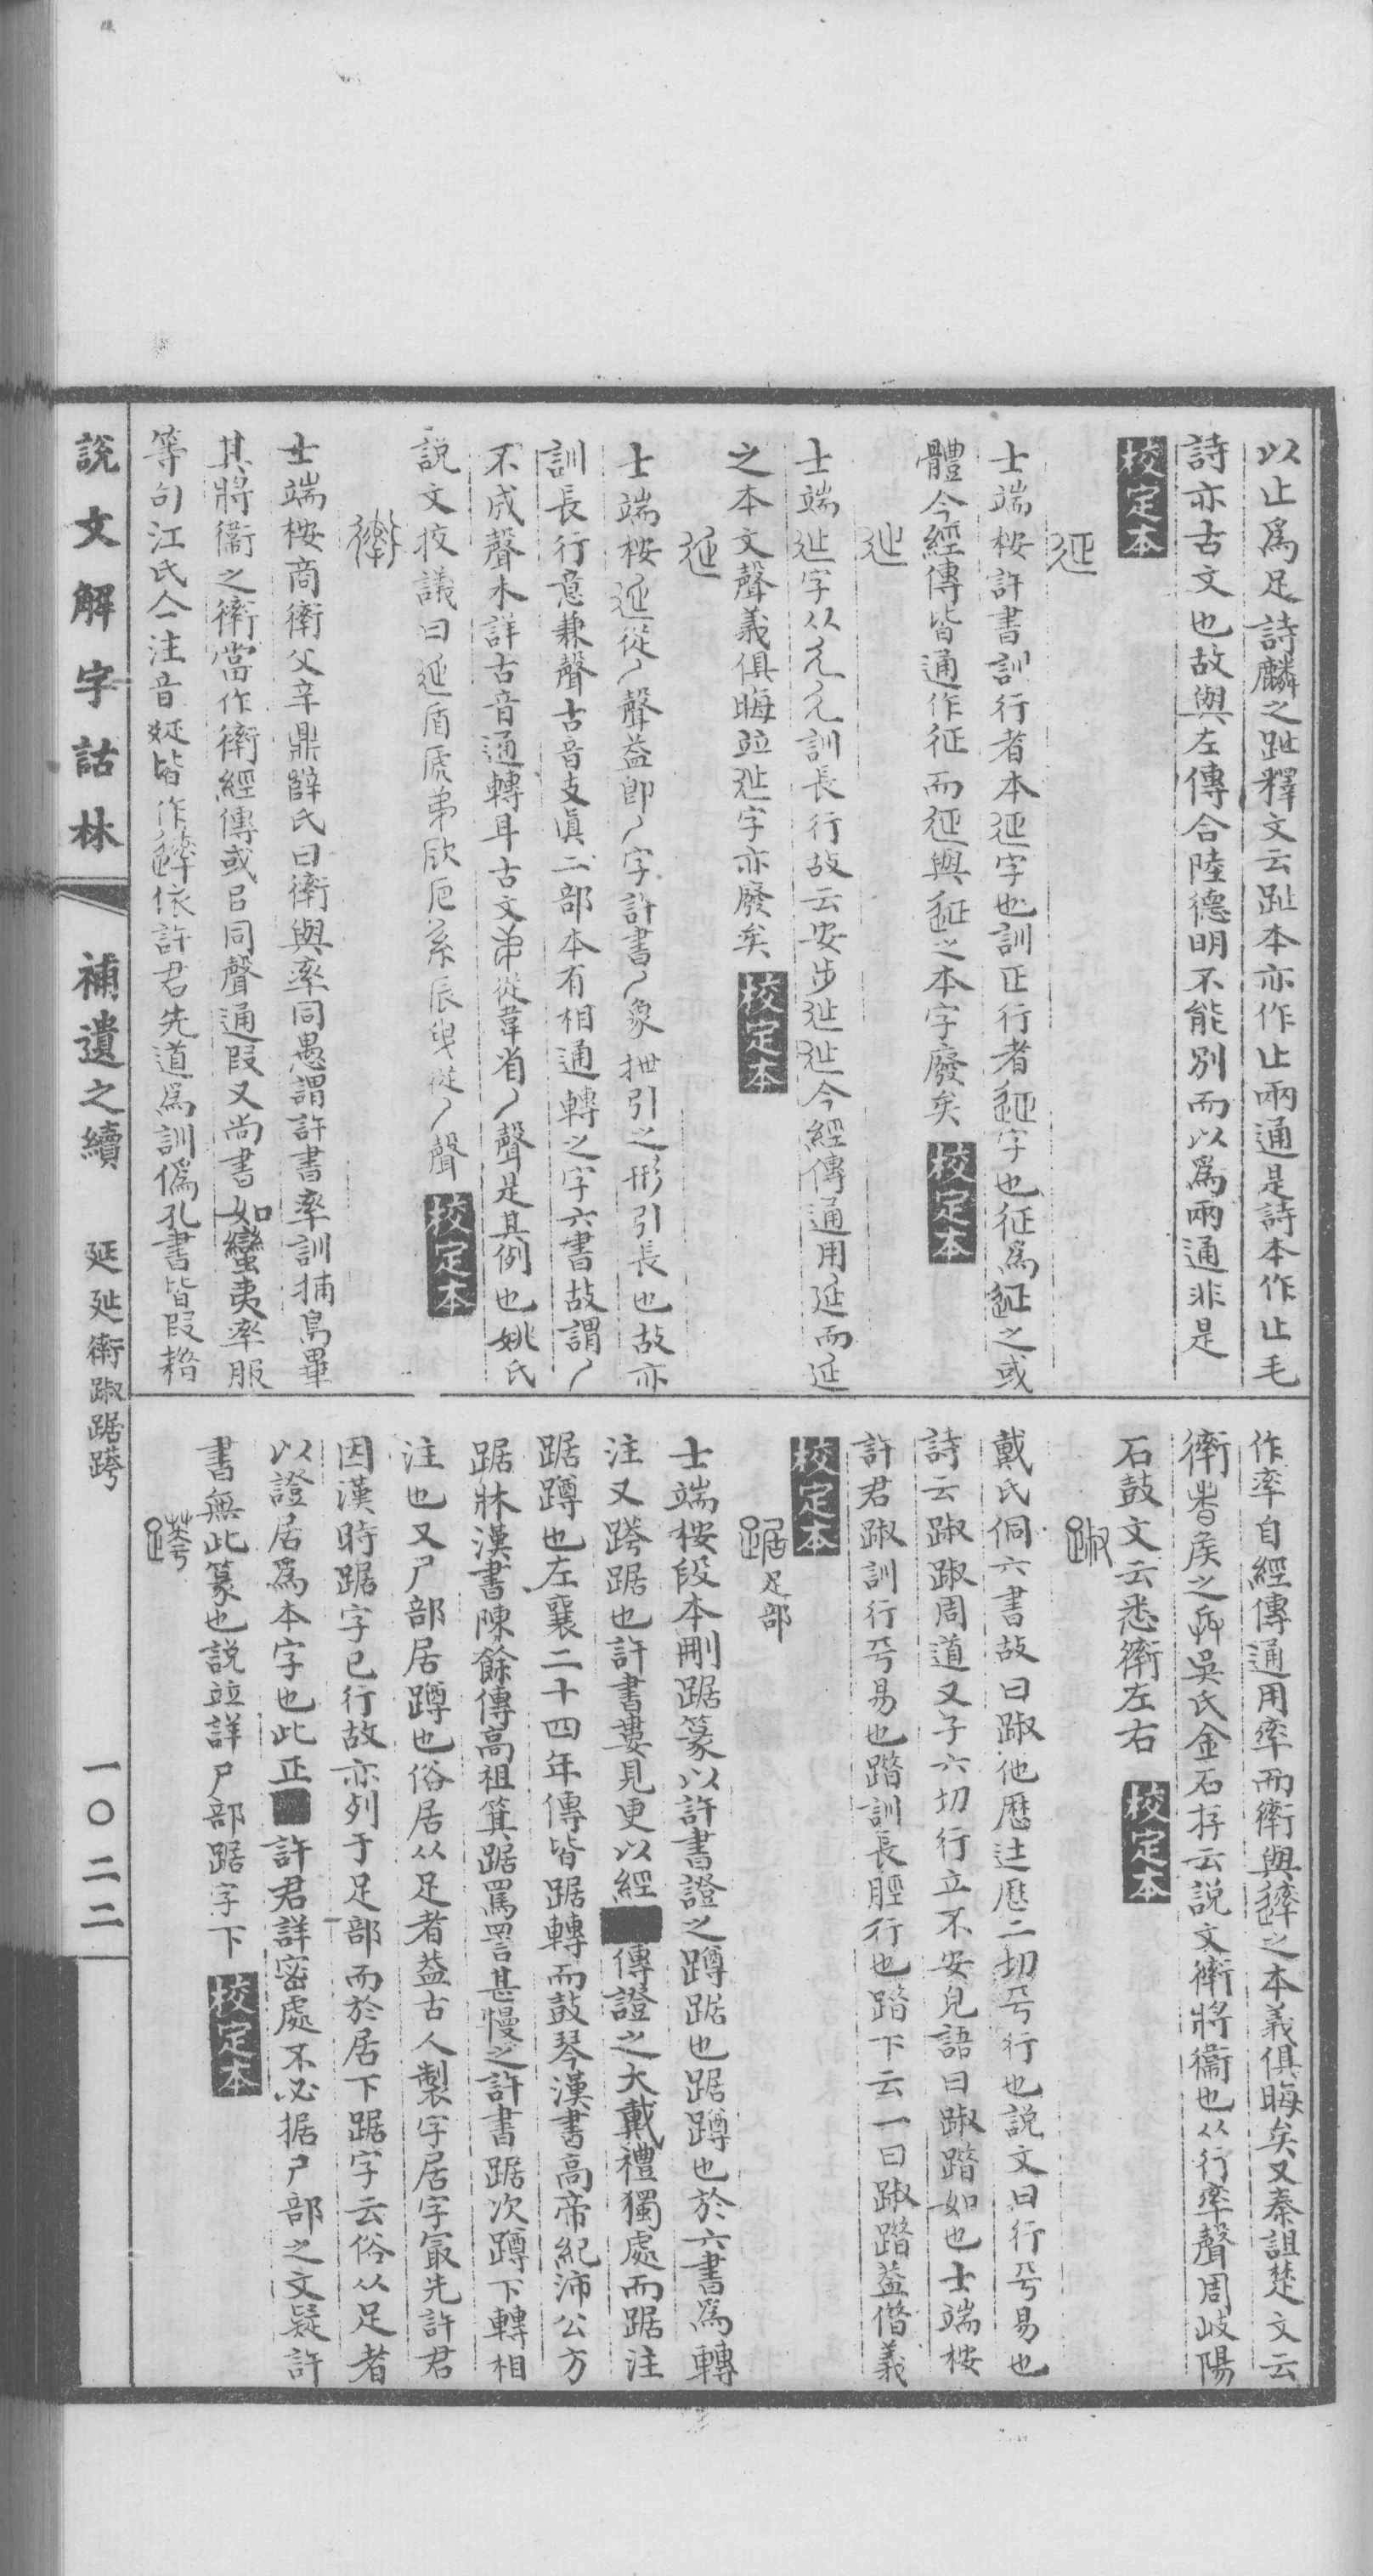 以止爲足詩麟之趾釋文云趾本亦作止兩通是詩本作止毛
詩亦古文也故與左傳合陸德明不能別而以爲兩通非是
校定本
延
士端桉許書訓行者本延字也訓正行者𨒌字也征爲𨒌之或
體今經傳皆通作征而延與𨒌之本字廢矣 校定本
㢟
士端㢟字从廴廴訓長行故云安步㢟㢟今經傳通用延而延
之本文聲義俱晦竝㢟字亦廢矣 校定本
延
士端桉延從丿聲益卽丿字許書丿象抴引之形引長也故亦
訓長行意兼聲古音支眞二部本有相通轉之字六書故謂丿
不成聲木詳古音通轉耳古文弟從韋省丿聲是其例也姚氏
說文挍議曰延盾虒弟欥卮系辰曳從丿聲 校定本
衛
士端桉商衛父辛鼎辥氏曰衛與率同愚謂許書率訓捕鳥畢
其將衞之衛當作衛經傳或㠯同聲通叚又尚書如蠻夷率服
等句江氏亼注音疑皆作䢦依許君先道爲訓僞孔書皆叚輅
作率自經傳通用率而衛與䢦之本義俱晦矣又秦詛楚文云
衛者矦之兵吳氏金石存云說文衛將衞也从行率聲周岐陽
石鼓文云悉衛左右 校定本
踧
戴氏侗六書故曰踧他歷迬歷二切平行也說文曰行平易也
詩云踧踧周道又子六切行立不安皃語曰踧踖如也士端桉
許君踧訓行平易也踖訓長脛行也踖下云一曰踧踖益僭義
校定本
踞 足部
士端桉段本刪踞篆以許書證之蹲踞也踞蹲也於六書爲轉
注又跨踞也許書婁見更以經傳證之大戴禮獨處而踞注
踞蹲也左襄二十四年傳皆踞轉而鼓琴漢書高帝紀沛公方
踞牀漢書陳餘傳高祖箕踞罵詈甚慢之許書踞次蹲下轉相
注也又尸部居蹲也俗居从足者益古人製字居字㝡先許君
因漢時踞字已行故亦列于足部而於居下踞字云俗从足者
以證居爲本字也此正許君詳密處不必据尸部之文疑許
書無此篆也說竝詳尸部踞字下 校定本
說文解字詁林 補遺之續 延㢟衛踧踞跨 一〇二二